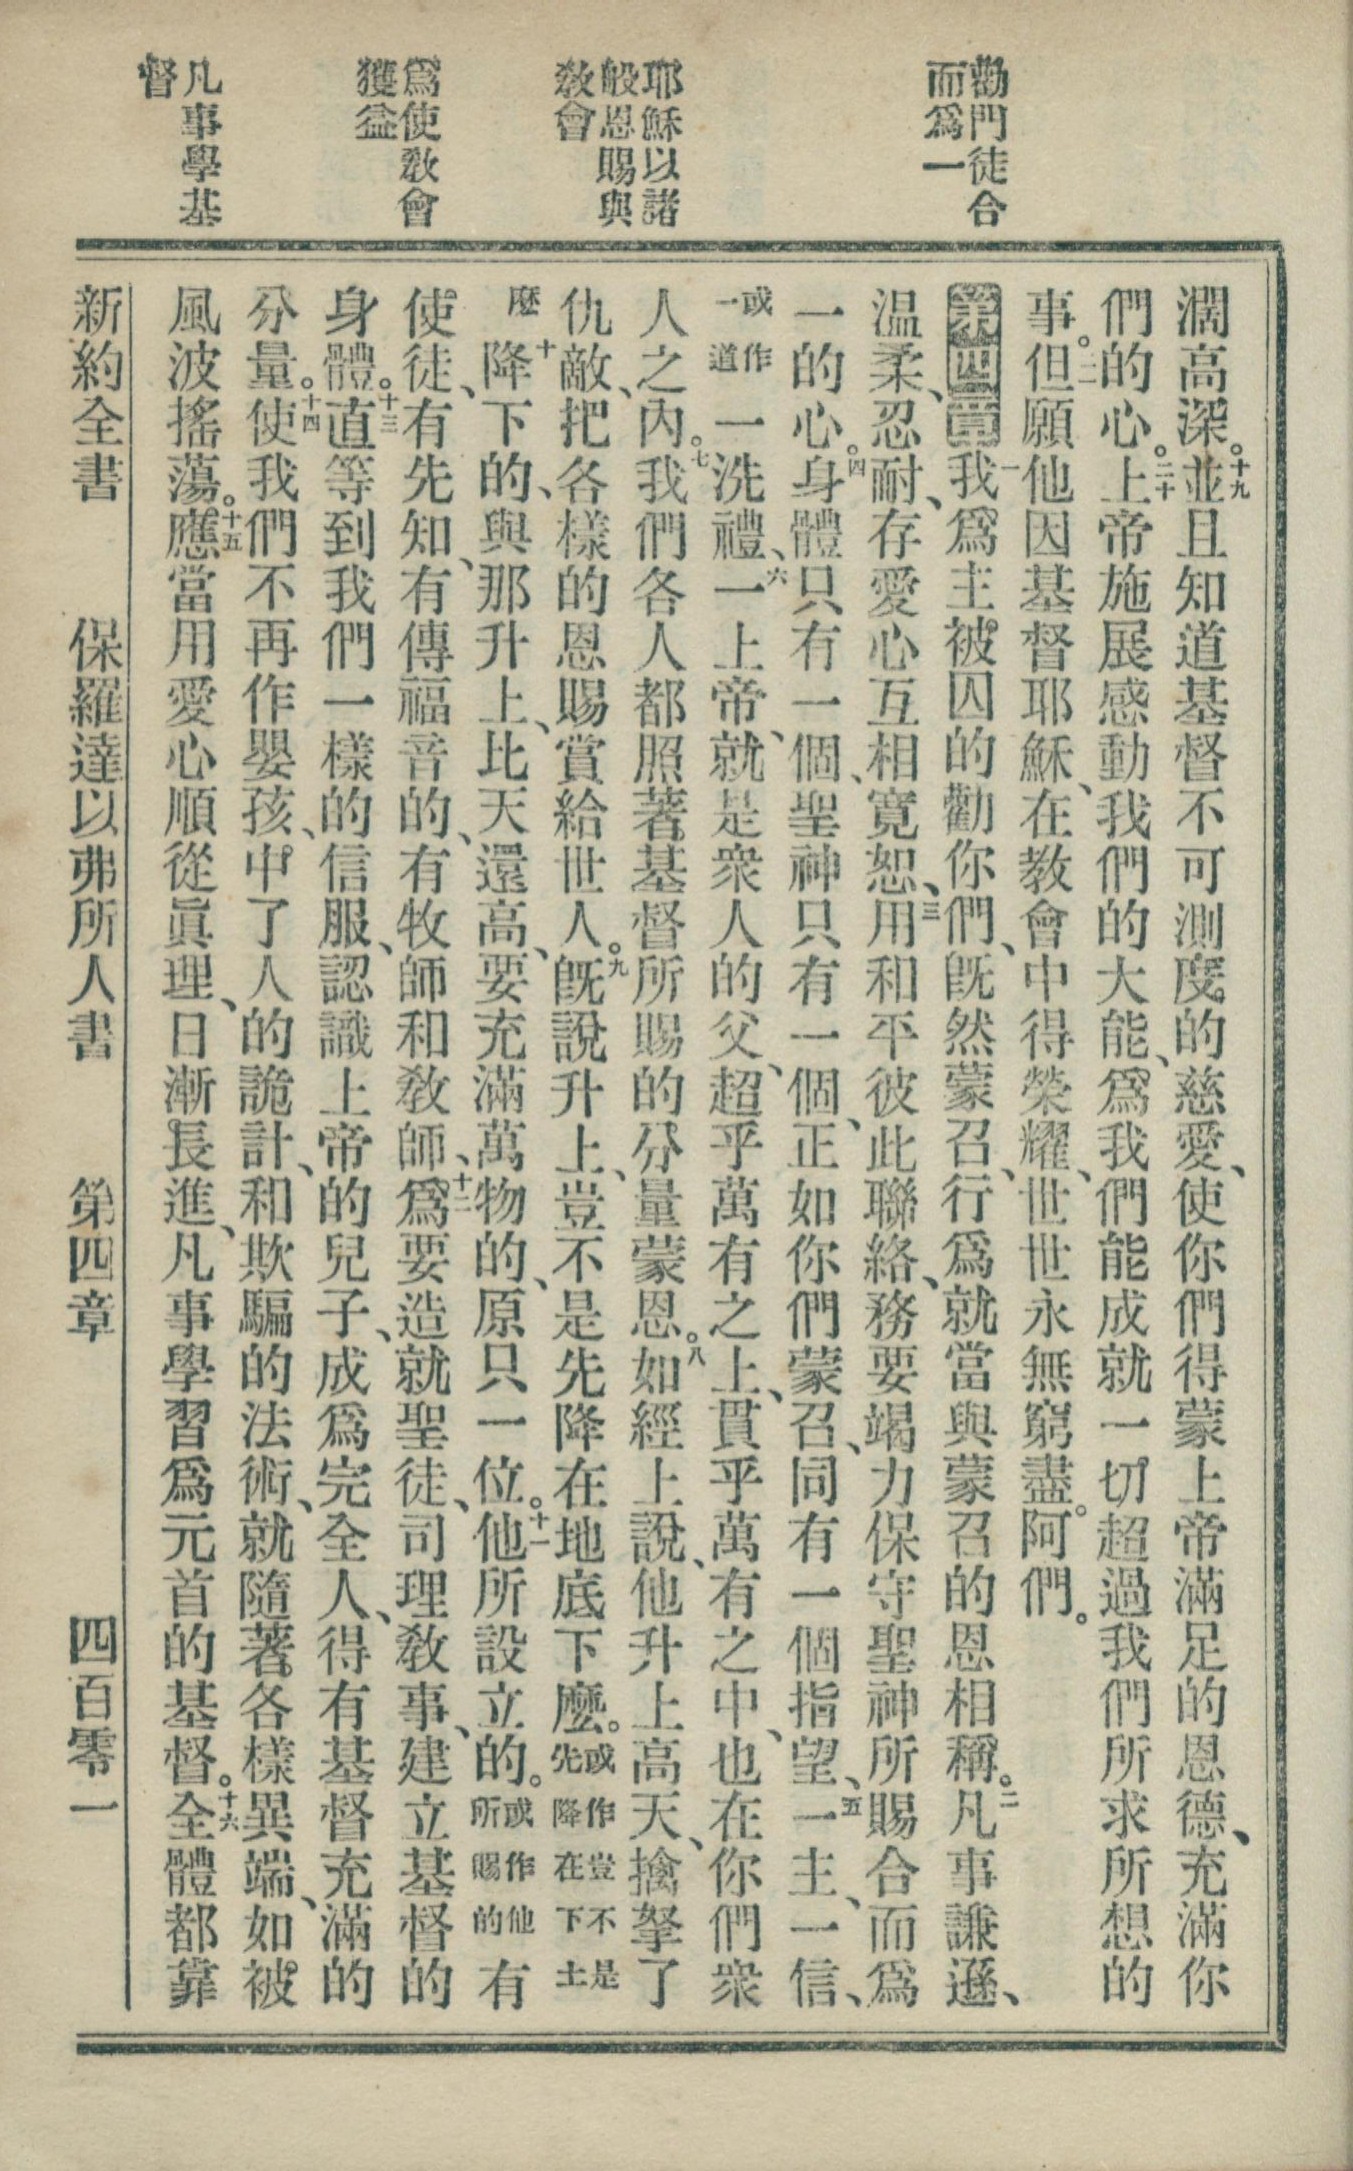 勸門徒合
而爲一
耶穌以諸
般恩賜與
敎會
爲使敎會
獲益
凡事學基
督
濶高深。十九並且知道基督不可測度的慈愛、使你們得蒙上帝滿足的恩德、充滿你
們的心。二十上帝施展感動我們的大能、爲我們能成就一切超過我們所求所想的
事。二一但願他因基督耶穌、在教會中得榮耀、世世永無窮盡。阿們。
第四章一我爲主被囚的勸你們、旣然蒙召、行爲就當與蒙召的恩相稱。二凡事謙遜、
温柔、忍耐、存愛心互相寬恕、三用和平彼此聯絡、務要竭力保守聖神所賜合而爲
一的心。四身體只有一個、聖神只有一個、正如你們蒙召、同有一個指望、五一主、一信、
或作一道一洗禮、六一上帝、就是衆人的父、超乎萬有之上、貫乎萬有之中、也在你們衆
人之內。七我們各人都照著基督所賜的分量蒙恩。八如經上說、他升上高天、擒拏了
仇敵、把各樣的恩賜賞給世人。九旣說升上、豈不是先降在地底下麼。或作豈不是先降在下土
麼十降下的、與那升上、比天還高、要充滿萬物的、原只一位。十一他所設立的。或作他所賜的有
使徒、有先知、有傳福音的、有牧師和敎師、十二爲要造就聖徒、司理敎事、建立基督的
身體。十三直等到我們一樣的信服、認識上帝的兒子、成爲完全人、得有基督充滿的
分量。十四使我們不再作嬰孩、中了人的詭計、和欺騙的法術、就隨著各樣異端、如被
風波搖蕩。十五應當用愛心順從眞理、日漸長進、凡事學習爲元首的基督。十六全體都靠
新約全書　保羅達以弗所人書　第四章　四百零一